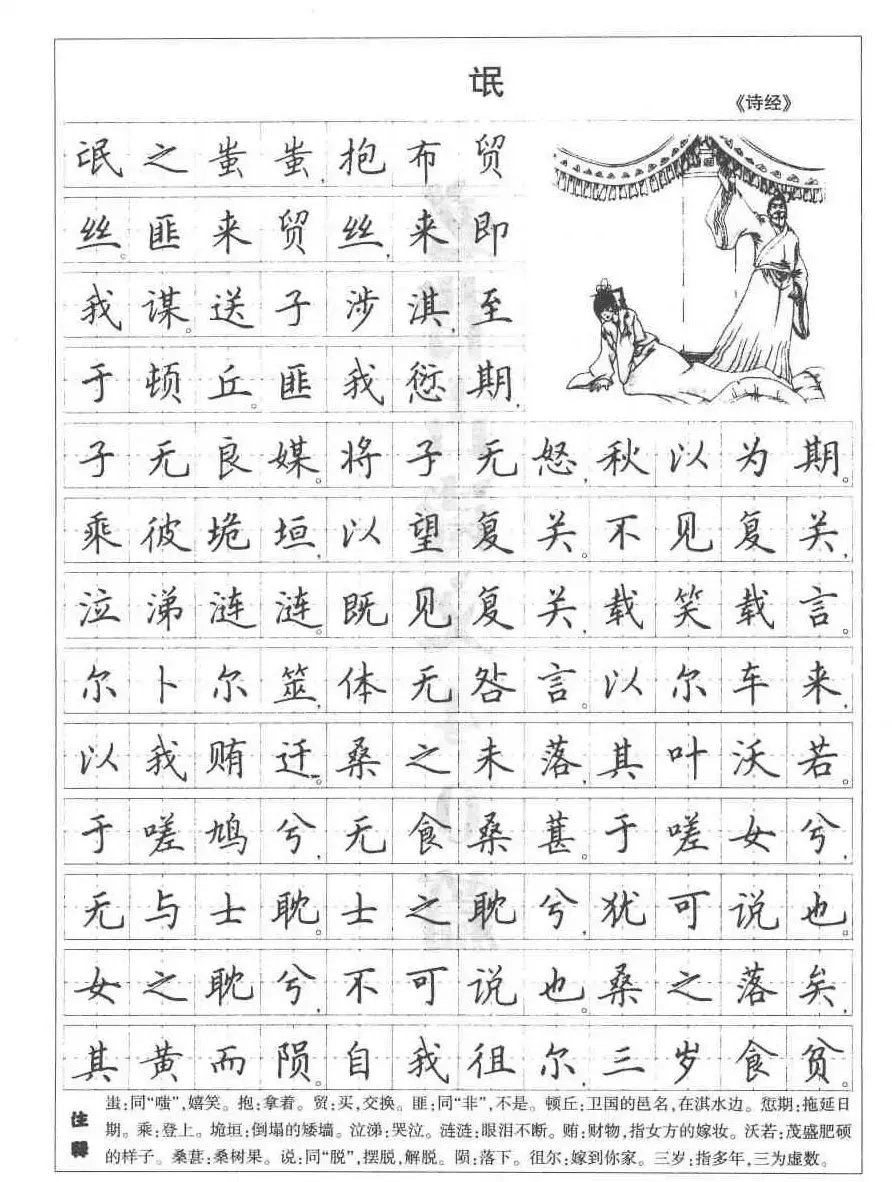 氓
《诗经》
氓之蚩蚩，抱布贸
丝。匪来贸丝，来即
我谋。送子涉淇，至
于顿丘。匪我愆期，
子无良媒。将子无怒，秋以为期。
乘彼垝垣，以望复关。不见复关，
泣涕涟涟。既见复关，载笑载言。
尔卜尔筮，体无咎言。以尔车来，
以我贿迁。桑之未落，其叶沃若。
于嗟鸠兮，无食桑葚。于嗟女兮，
无与士耽。士之耽兮，犹可说也。
女之耽兮，不可说也。桑之落矣，
其黄而陨。自我徂尔，三岁食贫。
注释
蚩：同“嗤”，嬉笑。抱：拿着。贸：买，交换。匪：同“非”，不是。顿丘：卫国的邑名，在淇水边。愆期：拖延日
期。乘：登上。垝垣：倒塌的矮墙。泣涕：哭泣。涟涟：眼泪不断。贿：财物，指女方的嫁妆。沃若：茂盛肥硕
的样子。桑葚：桑树果。说：同“脱”，摆脱，解脱。陨：落下。徂尔：嫁到你家。三岁：指多年，三为虚数。